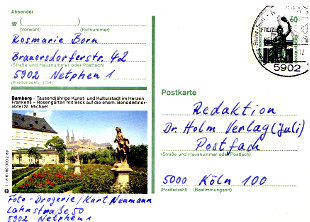 Absender
(Vorwahl) (Rufnummer)
Rosmarie Born
Brauersdorferstr. 42
(Straße und Hausnummer oder Postfach)
5902 Netphen 1
60
5902
Bamberg – Tausendjährige Kunst- und Kulturstadt im Herzen
Frankens – Rosengarten mit Blick auf die ehem. Benediktiner-
abtei St. Michael
Postkarte
Redaktion
Dr. Holm Verlag (Juli)
Postfach
(Straße und Hausnummer oder Postfach)
5000 Köln 100
(Postleitzahl) (Bestimmungsort)
Foto-Drogerie / Kurt Neumann
Lahnstraße 50
5902 Netphen 1